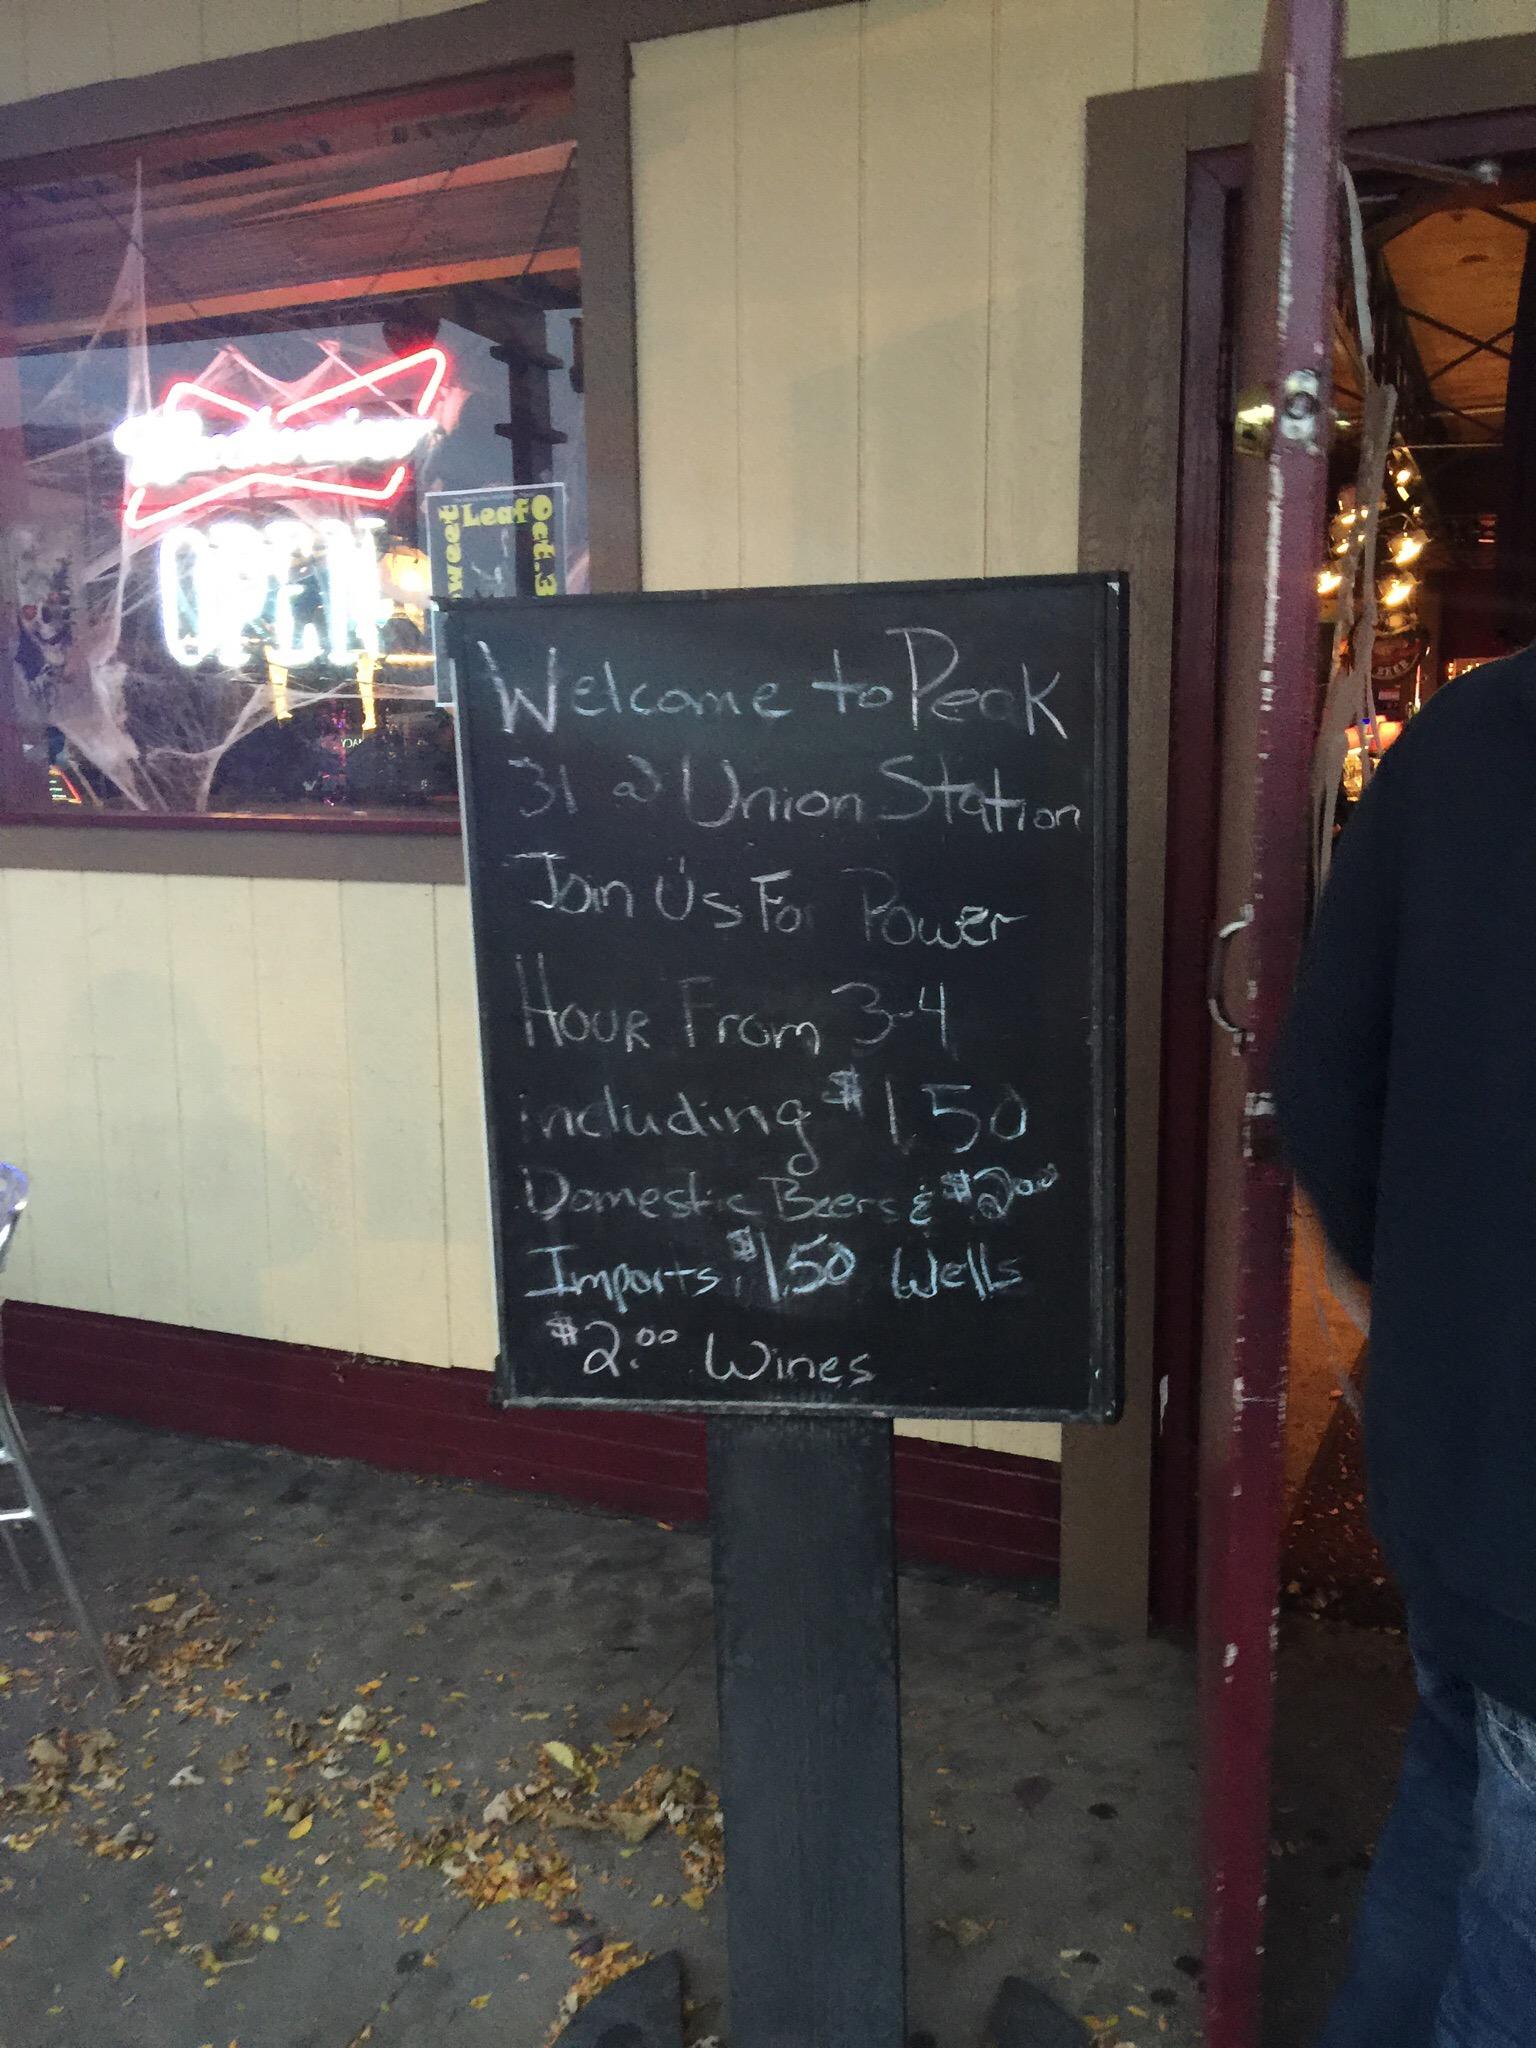 Budweiser
OPEN
Sweet Leaf Oct.3
Welcome to Peak
31 @ Union Station
Join Us Fo Power
Hour From 3-4
including $1.50
Domestic Beers & $2.00
Imports $1.50 Wells
$2.00 Wines
BEER